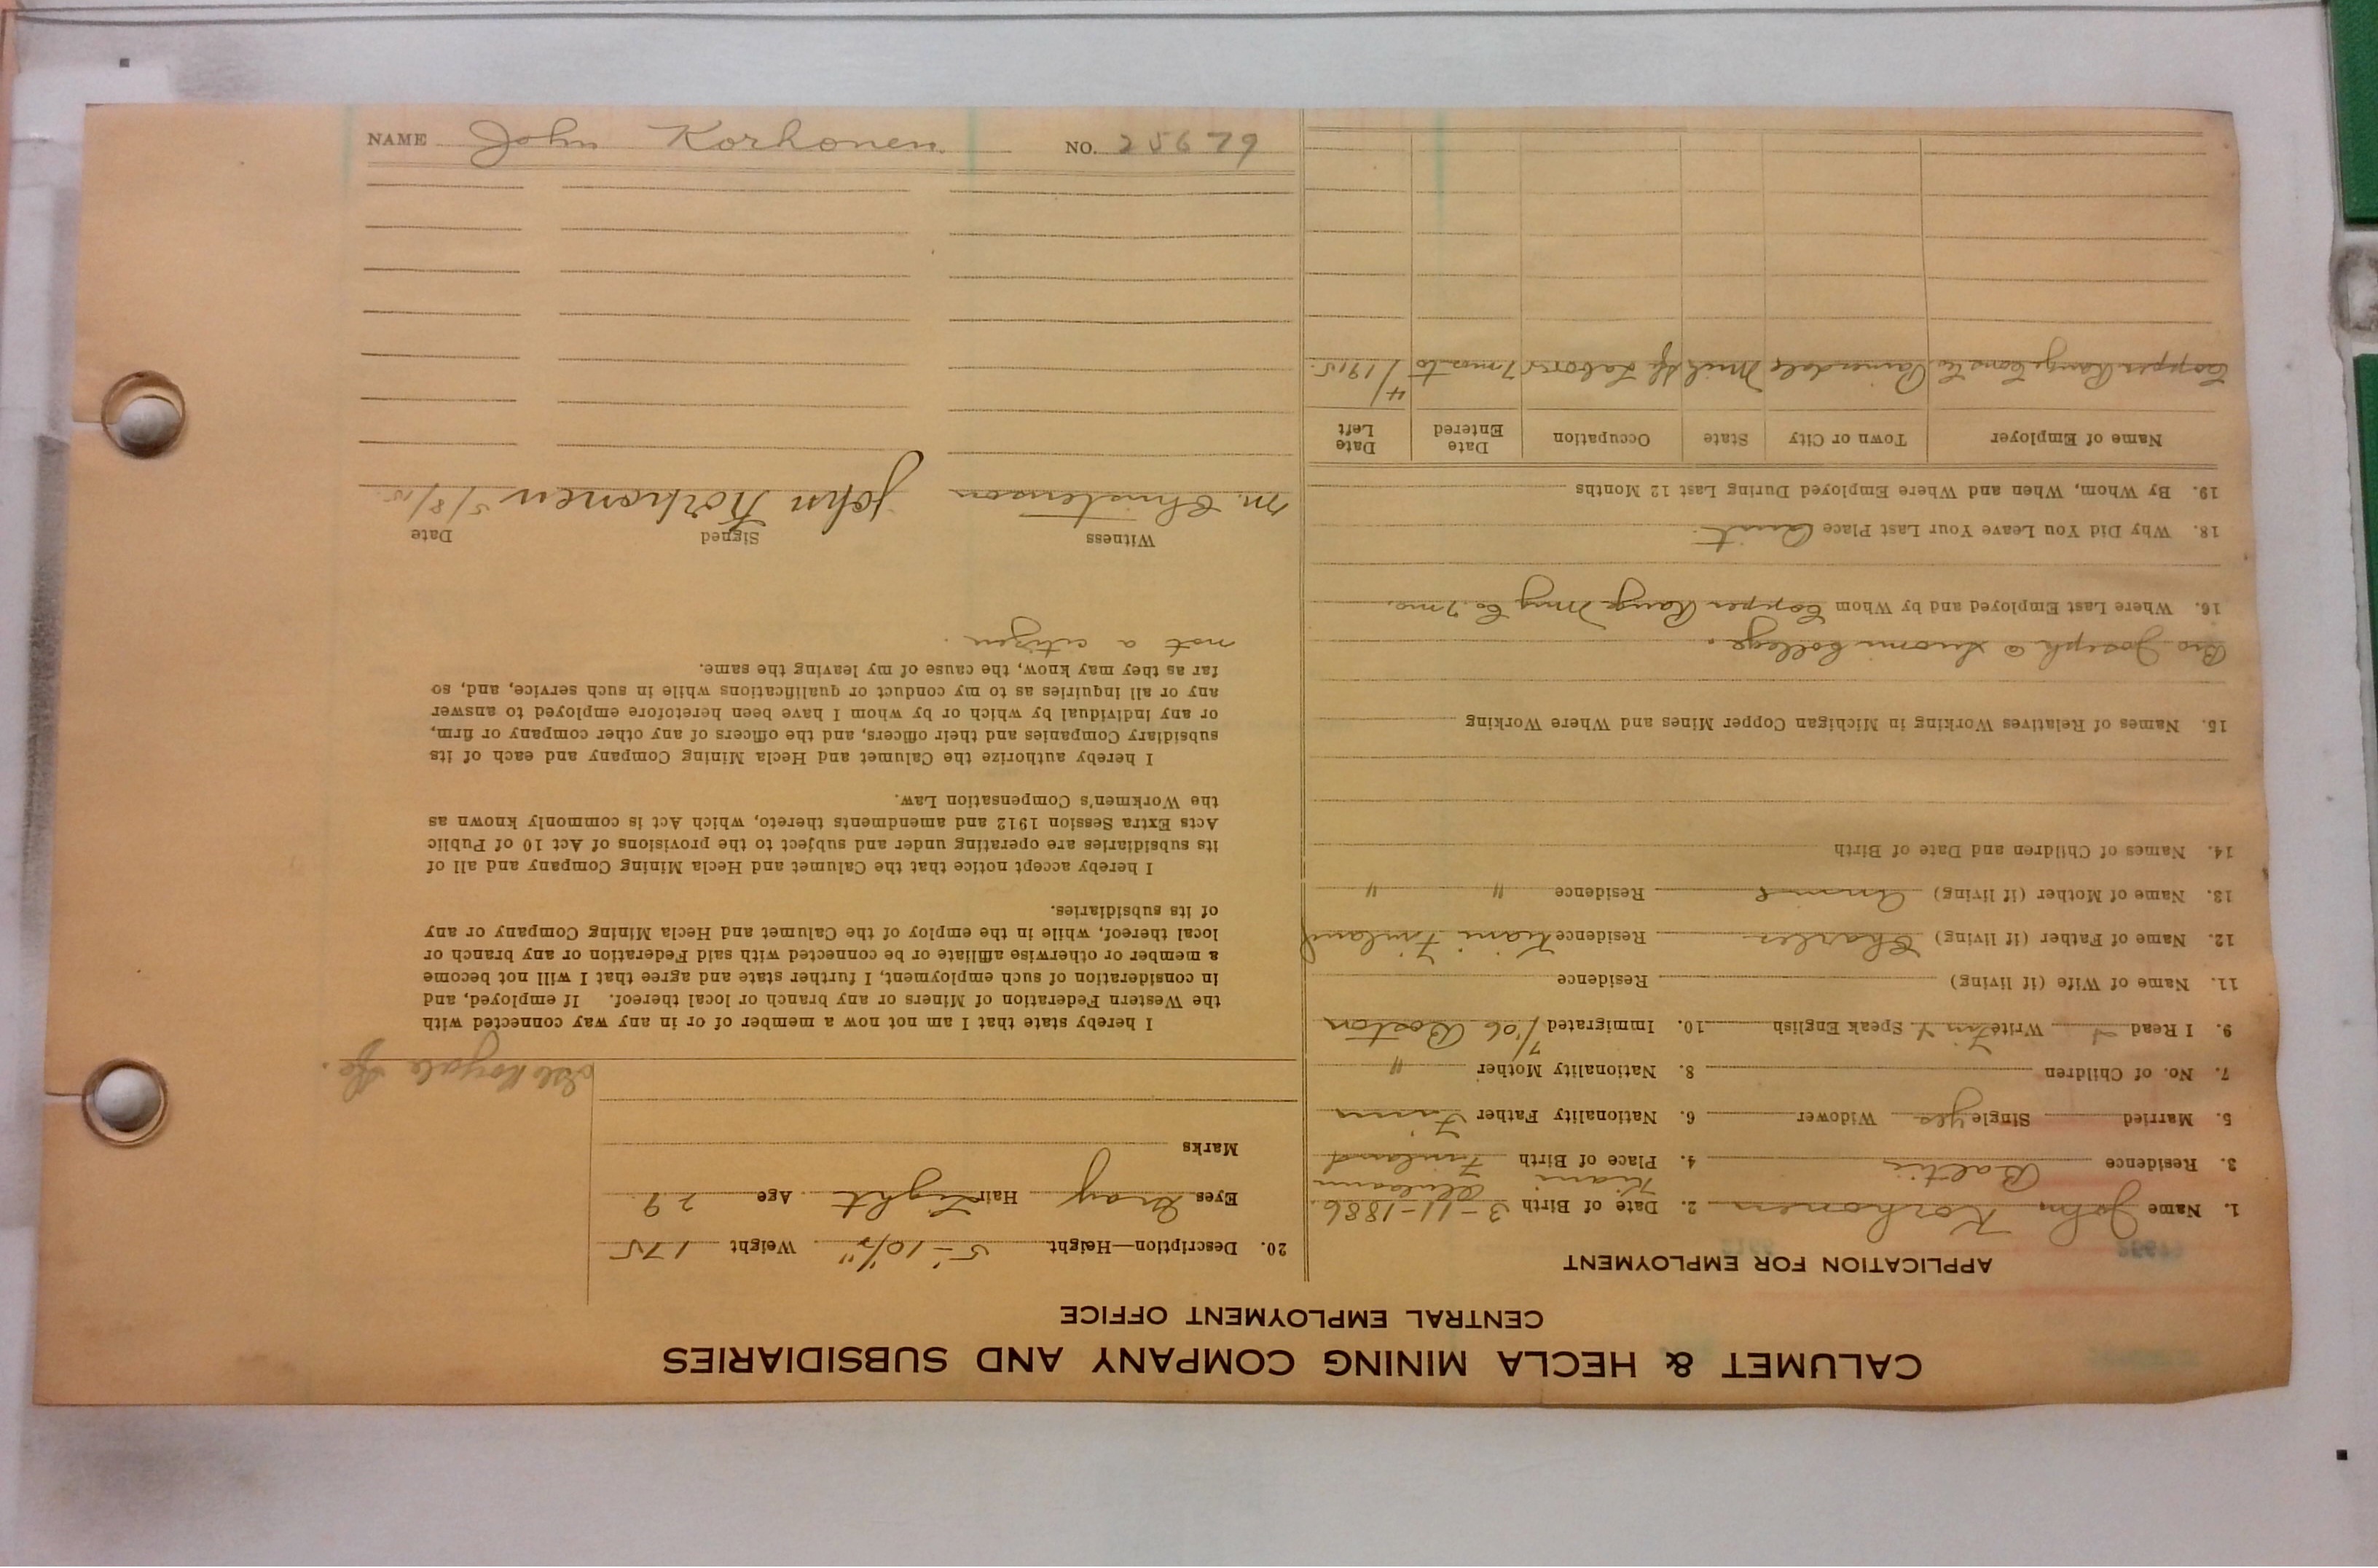 CALUMET & HECLA MINING COMPANY AND SUBSIDIARIES
CENTRAL EMPLOYMENT OFFICE
APPLICATION FOR EMPLOYMENT
1. Name John Korhonen 2. Date of Birth 3-11-1886
Kiani
3. Residence Baltic 4. Place of Birth Finland
5. Married Single yes Widower 6. Nationality Father Finn
7. No. of Children 8. Nationality Mother "
9. I Read Write Finn Speak English 10. Immigrated 7/06 Boston
11. Name of Wife (if living) Residence
12. Name of Father (if living) Charles Residence Kiani Finland
13. Name of Mother (if living) Residence " "
14. Names of Children and Date of Birth
15. Names of Relatives Working in Michigan Copper Mines and Where Working
Bro Joseph @ Suomi College.
16. Where Last Employed and by Whom Copper Range Mng Co. 7 mo.
18. Why Did You Leave Your Last Place Quit.
19. By Whom, When and Where Employed During Last 12 Months
Name of Employer Town or City State Occupation Date Entered Date Left
Copper Range Cons Co Painesdale Mich Sf Labores 7 mos to 4/1915.
20. Description—Height 5'-10½" Weight 175
Eyes Gray Hair Light Age 29
Marks
Isle Royale Sf.
I hereby state that I am not now a member of or in any way connected with
the Western Federation of Miners or any branch or local thereof. If employed, and
in consideration of such employment, I further state and agree that I will not become
a member or otherwise affiliate or be connected with said Federation or any branch or
local thereof, while in the employ of the Calumet and Hecla Mining Company or any
of its subsidiaries.
I hereby accept notice that the Calumet and Hecla Mining Company and all of
its subsidiaries are operating under and subject to the provisions of Act 10 of Public
Acts Extra Session 1912 and amendments thereto, which Act is commonly known as
the Workmen's Compensation Law.
I hereby authorize the Calumet and Hecla Mining Company and each of its
subsidiary Companies and their officers, and the officers of any other company or firm,
or any individual by which or by whom I have been heretofore employed to answer
any or all inquiries as to my conduct or qualifications while in such service, and, so
far as they may know, the cause of my leaving the same.
not a citizen.
Witness Signed Date
M. Christenson John Korhonen 5/8/15.
NAME John Korhonen. NO. 25679